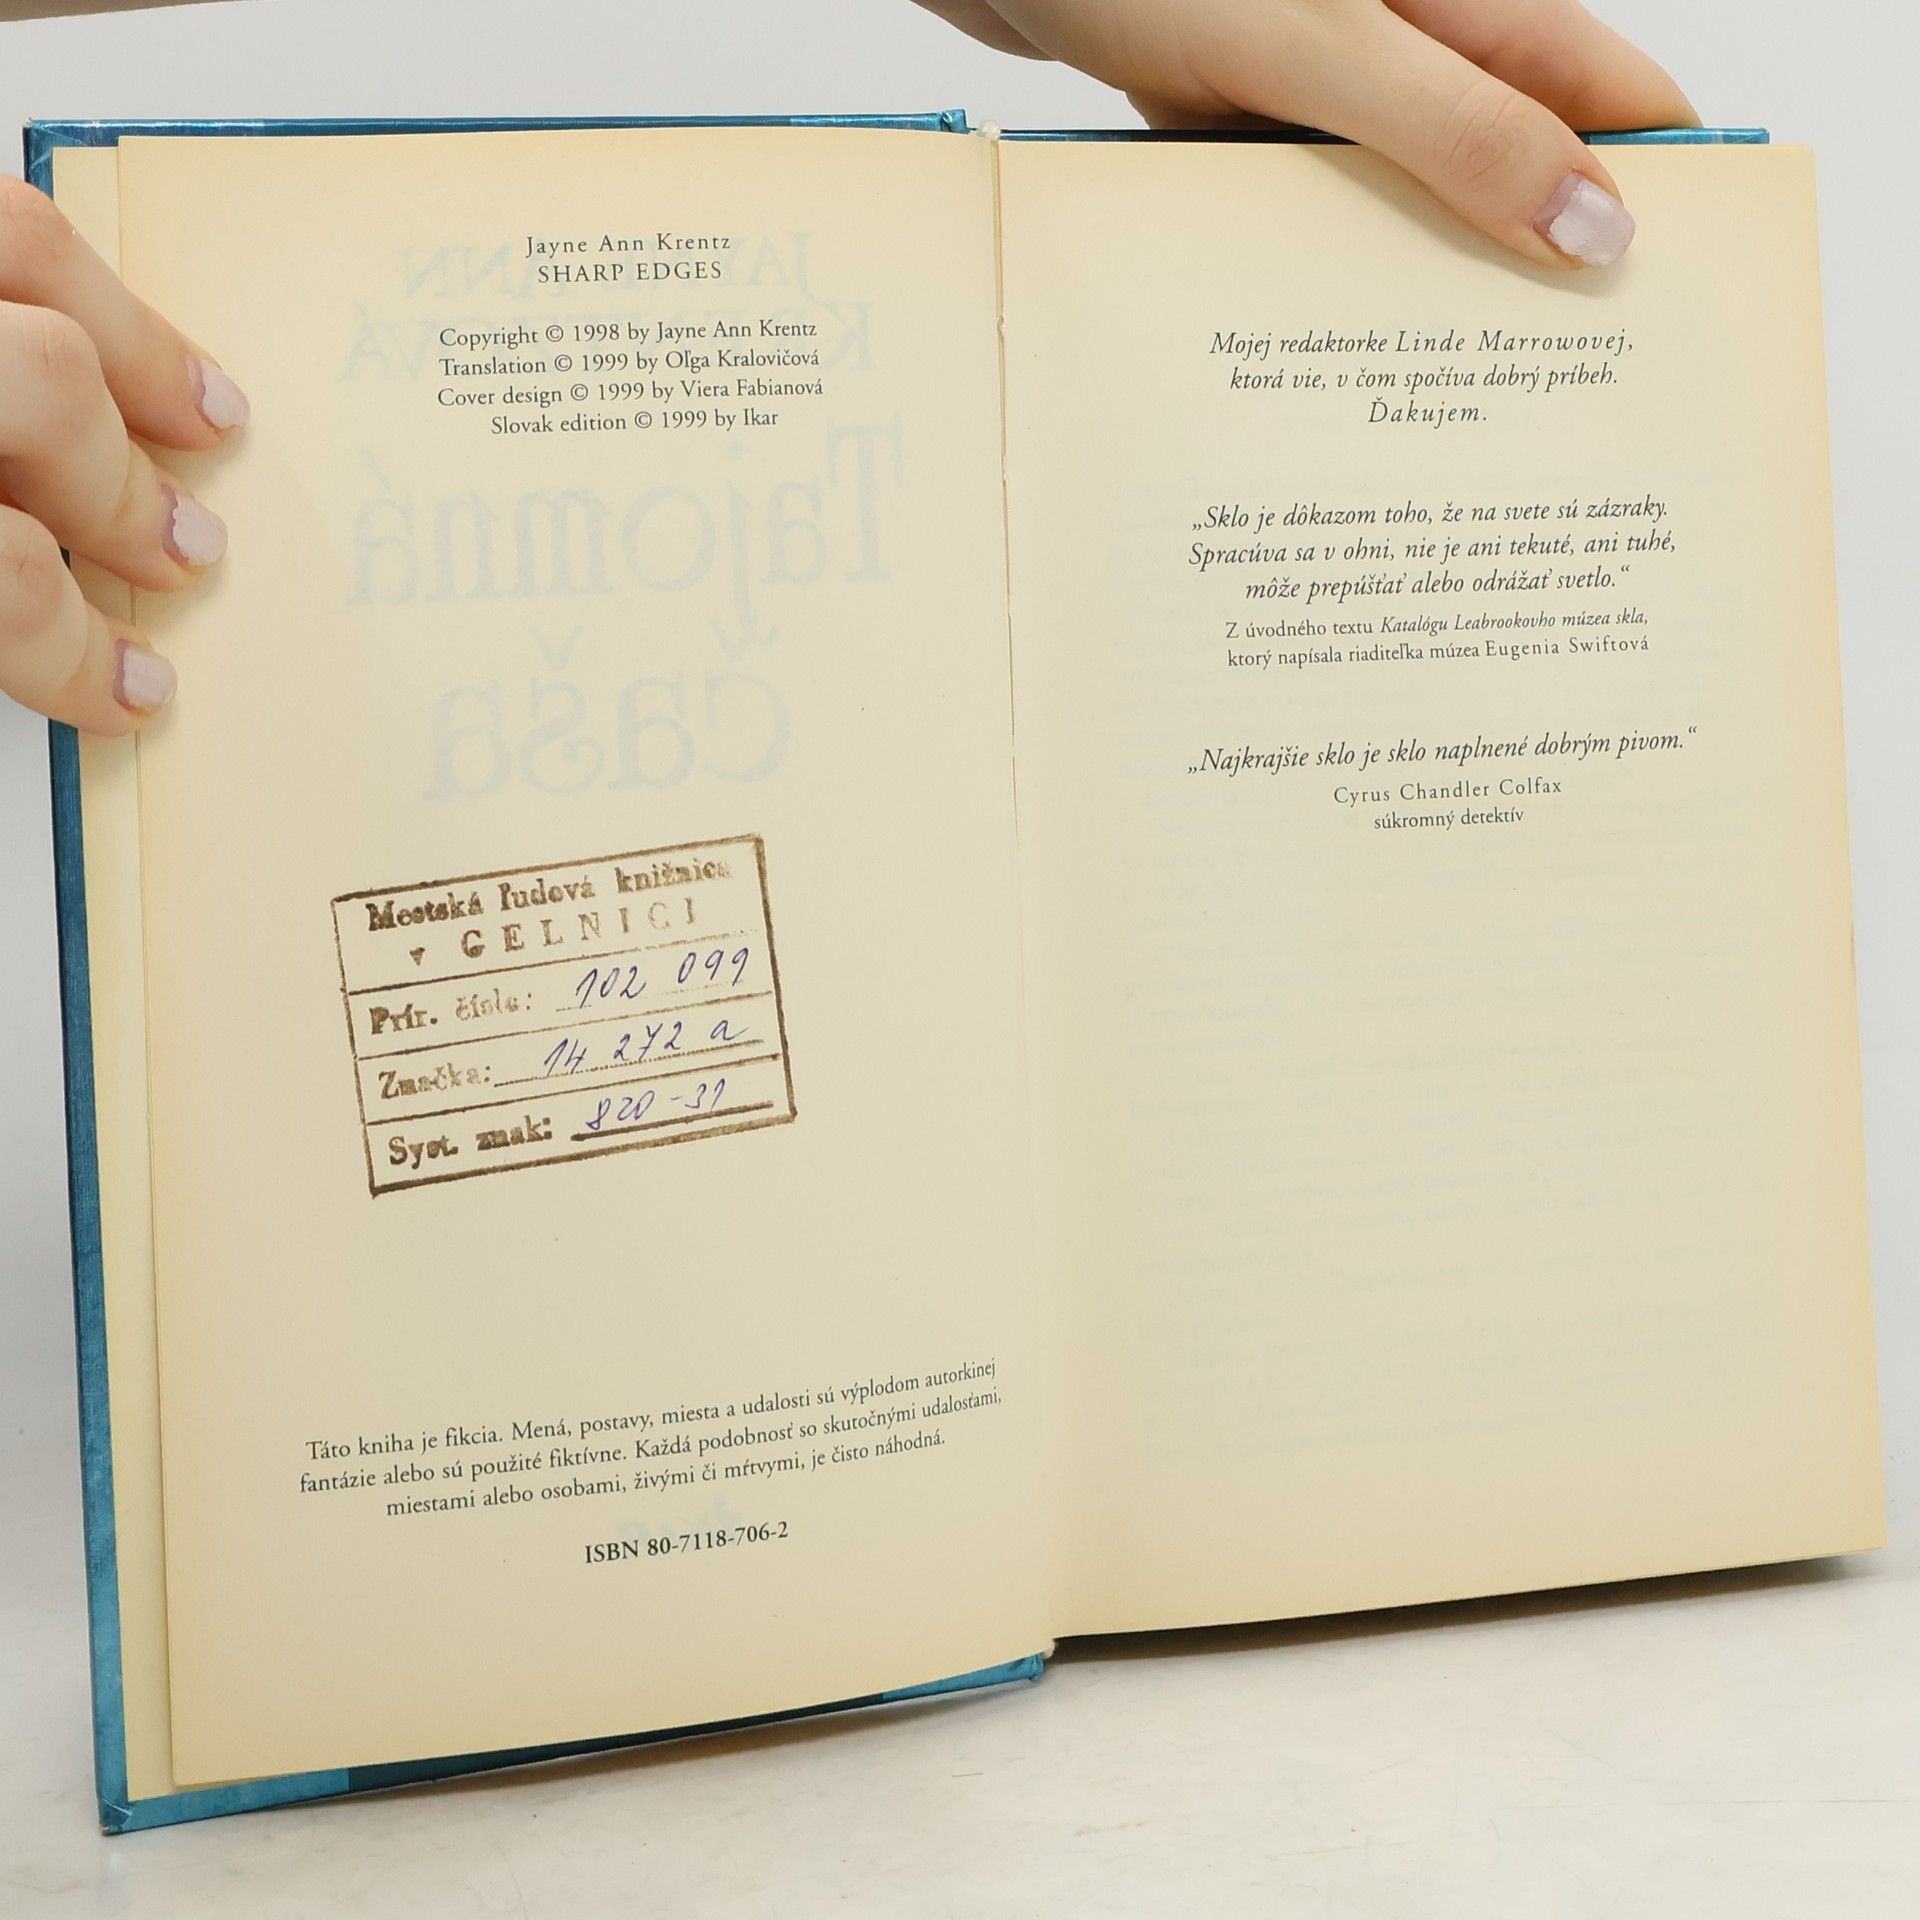 Jayne Ann Krentz
SHARP EDGES
Copyright © 1998 by Jayne Ann Krentz
Translation © 1999 by Oľga Kralovičová
Cover design © 1999 by Viera Fabianová
Slovak edition © 1999 by Ikar
Mestská ľudová knižnica
v GELNICI
Prír. číslo: 102 099
Značka: 14 272 a
Syst. znak: 820-31
Táto kniha je fikcia. Mená, postavy, miesta a udalosti sú výplodom autorkinej
fantázie alebo sú použité fiktívne. Každá podobnosť so skutočnými udalosťami,
miestami alebo osobami, živými či mŕtvymi, je čisto náhodná.
ISBN 80-7118-706-2
Mojej redaktorke Linde Marrowovej,
ktorá vie, v čom spočíva dobrý príbeh.
Ďakujem.
„Sklo je dôkazom toho, že na svete sú zázraky.
Spracúva sa v ohni, nie je ani tekuté, ani tuhé,
môže prepúšťať alebo odrážať svetlo.“
Z úvodného textu Katalógu Leabrookovho múzea skla,
ktorý napísala riaditeľka múzea Eugenia Swiftová
„Najkrajšie sklo je sklo naplnené dobrým pivom.“
Cyrus Chandler Colfax
súkromný detektív